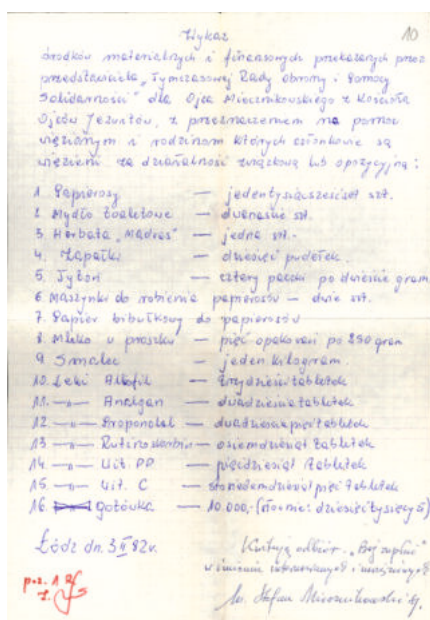 Wykaz
10
środków materialnych i finansowych przekazanych przez
przedstawiciela „Tymczasowej Rady obrony i Pomocy
Solidarności" dla Ojca Miecznikowskiego z Kościoła
Ojców Jezuitów, z przeznaczeniem na pomoc
więzionym i rodzinom których członkowie są
więzieni za działalność związkową lub opozycyjną :
1. Papierosy — jedentysiącsześćset szt.
2. Mydło toaletowe — dwanaście szt.
3. Herbata „Madras" — jedna szt.-
4. Zapałki — dziesięć pudełek.
5. Tytoń — cztery paczki po dwieście gram
6. Maszynki do robienia papierosów — dwie szt.
7. Papier bibułkowy do papierosów
8. Mleko w proszku — pięć opakowań po 250 gram
9. Smalec — jeden kilogram.
10. Leki Allofil — trzydzieści tabletek
11. —„— Analgan — dwadzieścia tabletek
12. —„— Propanolol — dwadzieścia pięć tabletek
13 —„— Rutinoskorbin — osiemdziesiąt tabletek
14 —„— Wit. PP — pięćdziesiąt tabletek
15 —„— Wit. C — stosiedemdziesiąt pięć tabletek
16. gotówka — 10.000,- (słownie: dziesięć tysięcy zł)
Łódź dn. 3 II 82r.
Kwituję odbiór. „Bóg zapłać"
w imieniu internowanych i
ks. Stefan Miecznikowski SJ.
poz. 1